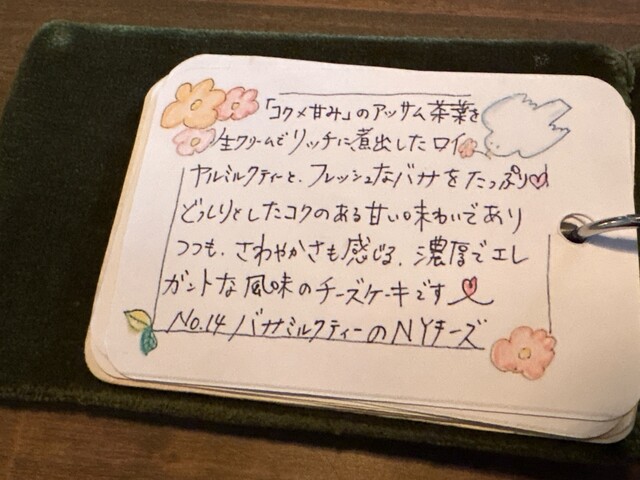 「コク×甘み」のアッサム茶葉を
生クリームでリッチに煮出したロイ
ヤルミルクティーと、フレッシュなバナナをたっぷり♡
どっしりとしたコクのある甘い味わいであり
つつも、さわやかさも感じる、濃厚でエレ
ガントな風味のチーズケーキです♡
No.14 バナナミルクティーのNYチーズ